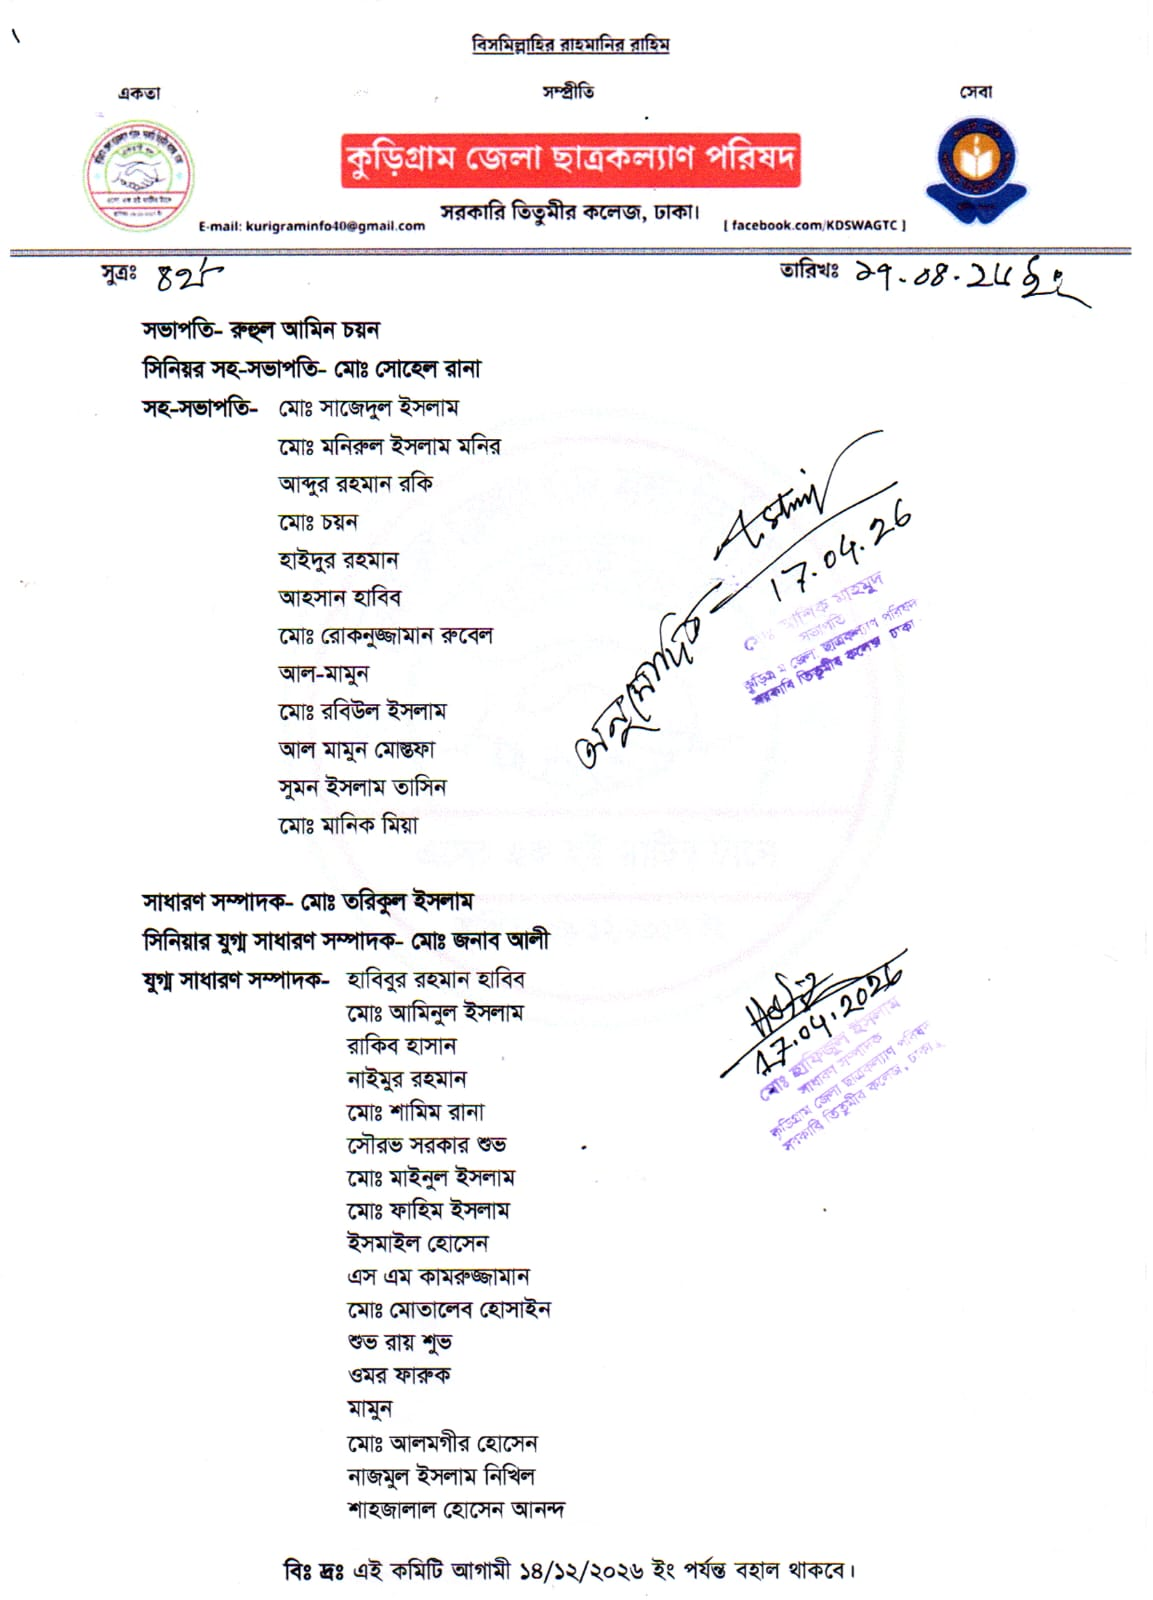 বিসমিল্লাহির রাহমানির রাহিম
একতা সম্প্রীতি সেবা
কুড়িগ্রাম জেলা ছাত্রকল্যাণ পরিষদ
সরকারি তিতুমীর কলেজ, ঢাকা।
E-mail: kurigraminfo40@gmail.com [ facebook.com/KDSWAGTC ]
সুত্রঃ তারিখঃ ১৭.০৪.২৬ ইং
সভাপতি- রুহুল আমিন চয়ন
সিনিয়র সহ-সভাপতি- মোঃ সোহেল রানা
সহ-সভাপতি- মোঃ সাজেদুল ইসলাম
মোঃ মনিরুল ইসলাম মনির
আব্দুর রহমান রকি
মোঃ চয়ন
হাইদুর রহমান
আহসান হাবিব
মোঃ রোকনুজ্জামান রুবেল
আল-মামুন
মোঃ রবিউল ইসলাম
আল মামুন মোস্তফা
সুমন ইসলাম তাসিন
মোঃ মানিক মিয়া
অনুমোদিত
17.04.26
মোঃ মাহমুদ
সভাপতি
কুড়িগ্রাম জেলা ছাত্রকল্যাণ পরিষদ
সরকারি তিতুমীর কলেজ ঢাকা
সাধারণ সম্পাদক- মোঃ তরিকুল ইসলাম
সিনিয়ার যুগ্ম সাধারণ সম্পাদক- মোঃ জনাব আলী
যুগ্ম সাধারণ সম্পাদক- হাবিবুর রহমান হাবিব
মোঃ আমিনুল ইসলাম
রাকিব হাসান
নাইমুর রহমান
মোঃ শামিম রানা
সৌরভ সরকার শুভ
মোঃ মাইনুল ইসলাম
মোঃ ফাহিম ইসলাম
ইসমাইল হোসেন
এস এম কামরুজ্জামান
মোঃ মোতালেব হোসাইন
শুভ রায় শুভ
ওমর ফারুক
মামুন
মোঃ আলমগীর হোসেন
নাজমুল ইসলাম নিখিল
শাহজালাল হোসেন আনন্দ
17.04.2026
মোঃ হাফিজুল ইসলাম
সাধারণ সম্পাদক
কুড়িগ্রাম জেলা ছাত্রকল্যাণ পরিষদ
সরকারি তিতুমীর কলেজ, ঢাকা
বিঃ দ্রঃ এই কমিটি আগামী ১৪/১২/২০২৬ ইং পর্যন্ত বহাল থাকবে।